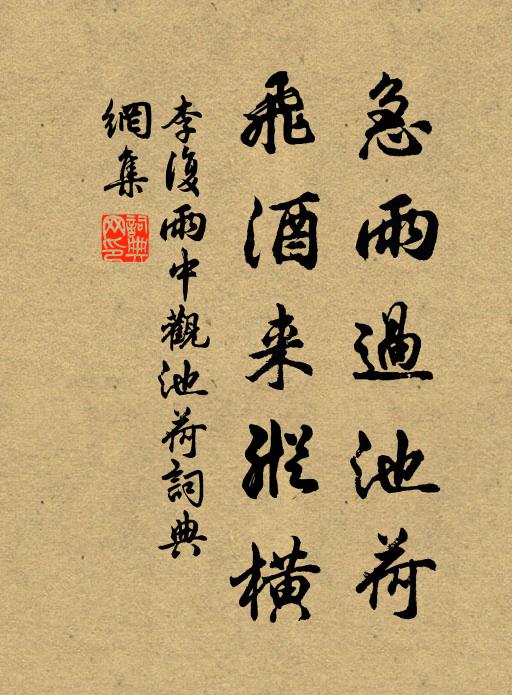 急雨過池荷
飛酒来縱橫
李復雨中觀池荷詞典
網集
詞典
网印